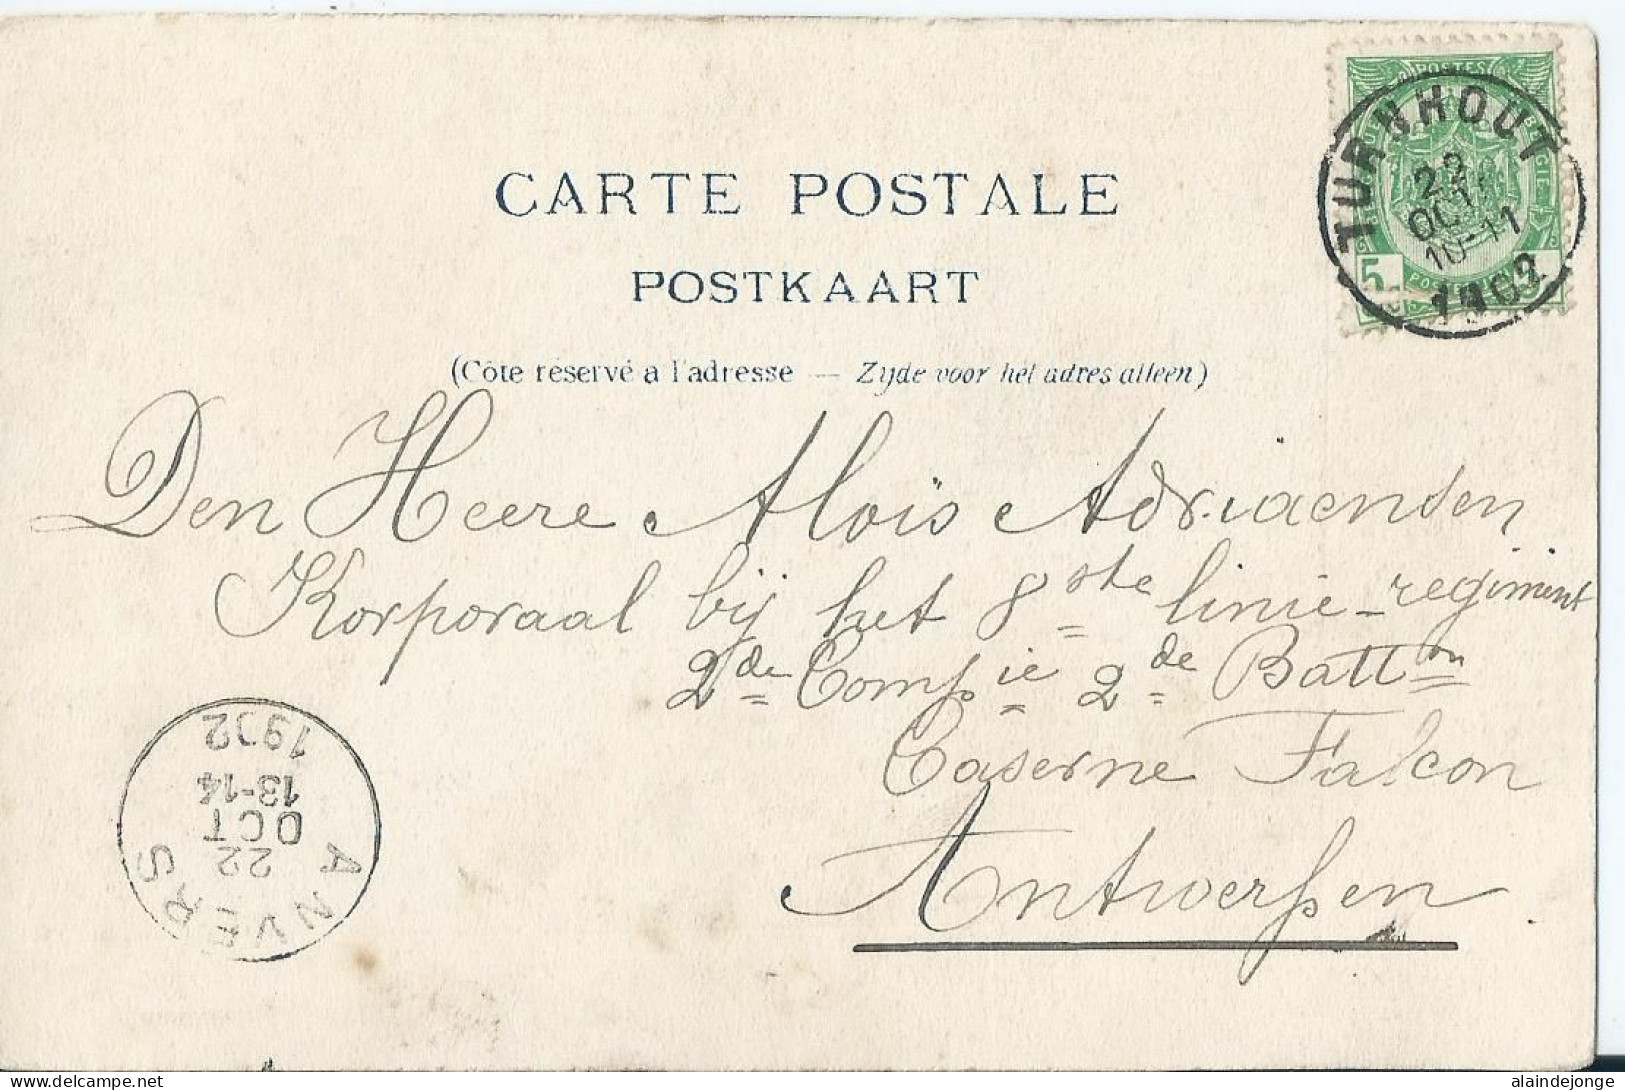 POSTES
TURNHOUT
22
OCT
10-11
1902
5
CARTE POSTALE
POSTKAART
(Côte réservé a l'adresse — Zijde voor het adres alleen)
Den Heere Aloïs Adriaensen
Korporaal bij het 8ste linie-regiment
2de Compie 2de Batton
Caserne Falcon
Antwerpen
ANVERS
22
OCT
13-14
1902
delcampe.net
alaindejonge